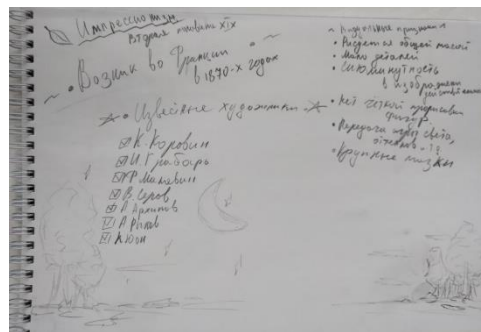 Импрессионизм
Вторая половина XIX
Возник во Франции
в 1870-х годах
Известные художники
К. Коровин
И. Грабарь
Ф. Малявин
В. Серов
А. Архипов
А. Рылов
К. Юон
признаки
Рисуется общей массой
Мало деталей
Сиюминутность
в изображении
действительн
Нет четкой прорисовки
фигур.
Передача игры света,
Крупные мазки